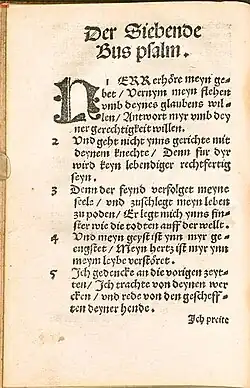 Der Siebende
Bus psalm.
HERR erhöre meyn ge-
bet / Vernym meyn flehen
vmb deynes glaubens wil-
len / Antwort myr vmb dey
ner gerechtigkeit willen.
2 Und geht nicht ynns gerichte mit
deynem knechte / Denn fur dyr
wird keyn lebendiger rechtfertig
seyn.
3 Denn der feynd verfolget meyne
seele / und zuschlegt meyn leben
zu poden / Er legt mich ynns fin-
ster wie die todten auff der wellt.
4 Und meyn geyst ist ynn myr ge-
engstet / Meyn hertz ist myr ynn
meym leybe verstöret.
5 Ich gedencke an die vorigen zeyt-
ten / Ich trachte von deynen wer
cken / und rede von den gescheff-
ten deyner hende.
Ich preite